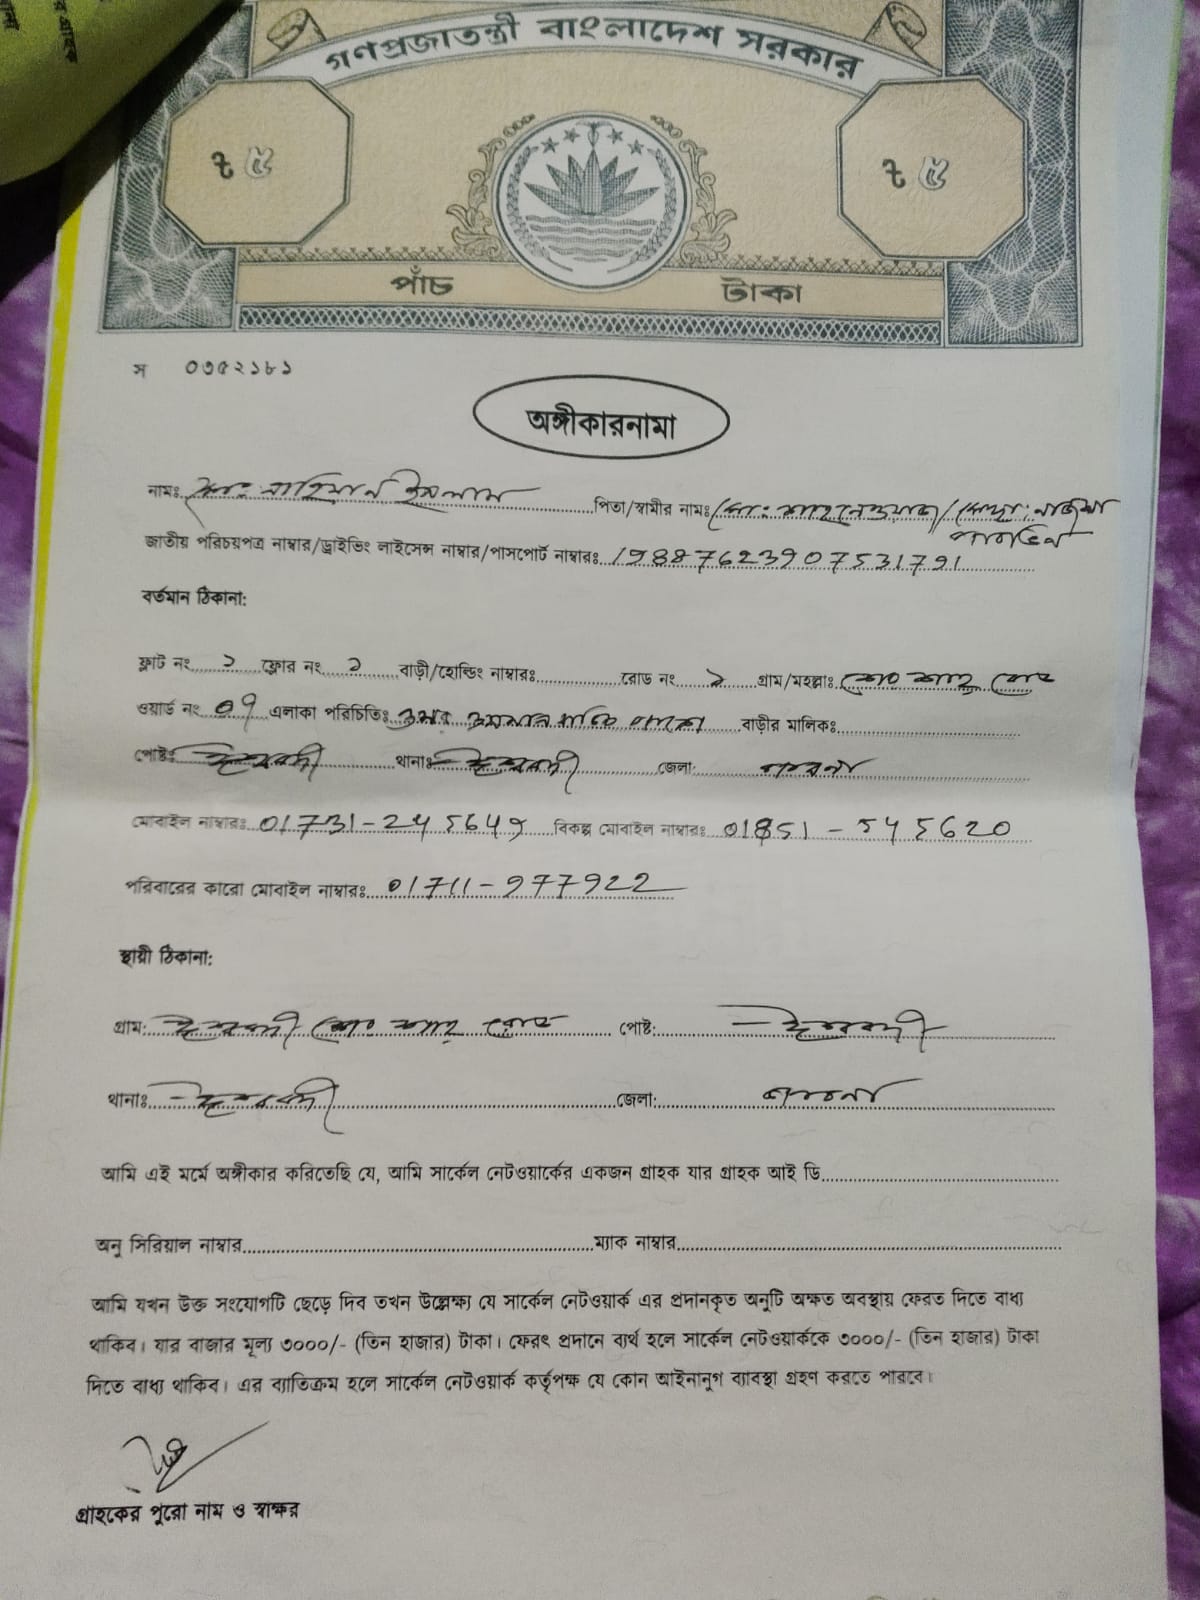 গণপ্রজাতন্ত্রী বাংলাদেশ সরকার
৳ ৫
৳ ৫
পাঁচ টাকা
স ০৩৫২১৮১
অঙ্গীকারনামা
নামঃ মোঃ নাহিমান ইসলাম পিতা/স্বামীর নামঃ মোঃ শাহনেওয়াজ/মোছা: নাজমা
পারভিন
জাতীয় পরিচয়পত্র নাম্বার/ড্রাইভিং লাইসেন্স নাম্বার/পাসপোর্ট নাম্বারঃ 19887623907531791
বর্তমান ঠিকানা:
ফ্লাট নং ১ ফ্লোর নং ১ বাড়ী/হোল্ডিং নাম্বারঃ রোড নং ১ গ্রাম/মহল্লাঃ শের শাহ রোড
ওয়ার্ড নং 07 এলাকা পরিচিতিঃ বাড়ীর মালিকঃ
পোষ্টঃ ঈশ্বরদী থানাঃ ঈশ্বরদী জেলা: পাবনা
মোবাইল নাম্বারঃ 01731-245649 বিকল্প মোবাইল নাম্বারঃ 01851-545620
পরিবারের কারো মোবাইল নাম্বারঃ 01711-977922
স্থায়ী ঠিকানা:
গ্রাম: ঈশ্বরদী শের শাহ রোড পোষ্ট: ঈশ্বরদী
থানাঃ ঈশ্বরদী জেলা: পাবনা
আমি এই মর্মে অঙ্গীকার করিতেছি যে, আমি সার্কেল নেটওয়ার্কের একজন গ্রাহক যার গ্রাহক আই ডি
অনু সিরিয়াল নাম্বার ম্যাক নাম্বার
আমি যখন উক্ত সংযোগটি ছেড়ে দিব তখন উল্লেক্ষ্য যে সার্কেল নেটওয়ার্ক এর প্রদানকৃত অনুটি অক্ষত অবস্থায় ফেরত দিতে বাধ্য
থাকিব। যার বাজার মূল্য ৩০০০/- (তিন হাজার) টাকা। ফেরৎ প্রদানে ব্যর্থ হলে সার্কেল নেটওয়ার্ককে ৩০০০/- (তিন হাজার) টাকা
দিতে বাধ্য থাকিব। এর ব্যাতিক্রম হলে সার্কেল নেটওয়ার্ক কর্তৃপক্ষ যে কোন আইনানুগ ব্যাবস্থা গ্রহণ করতে পারবে।
গ্রাহকের পুরো নাম ও স্বাক্ষর